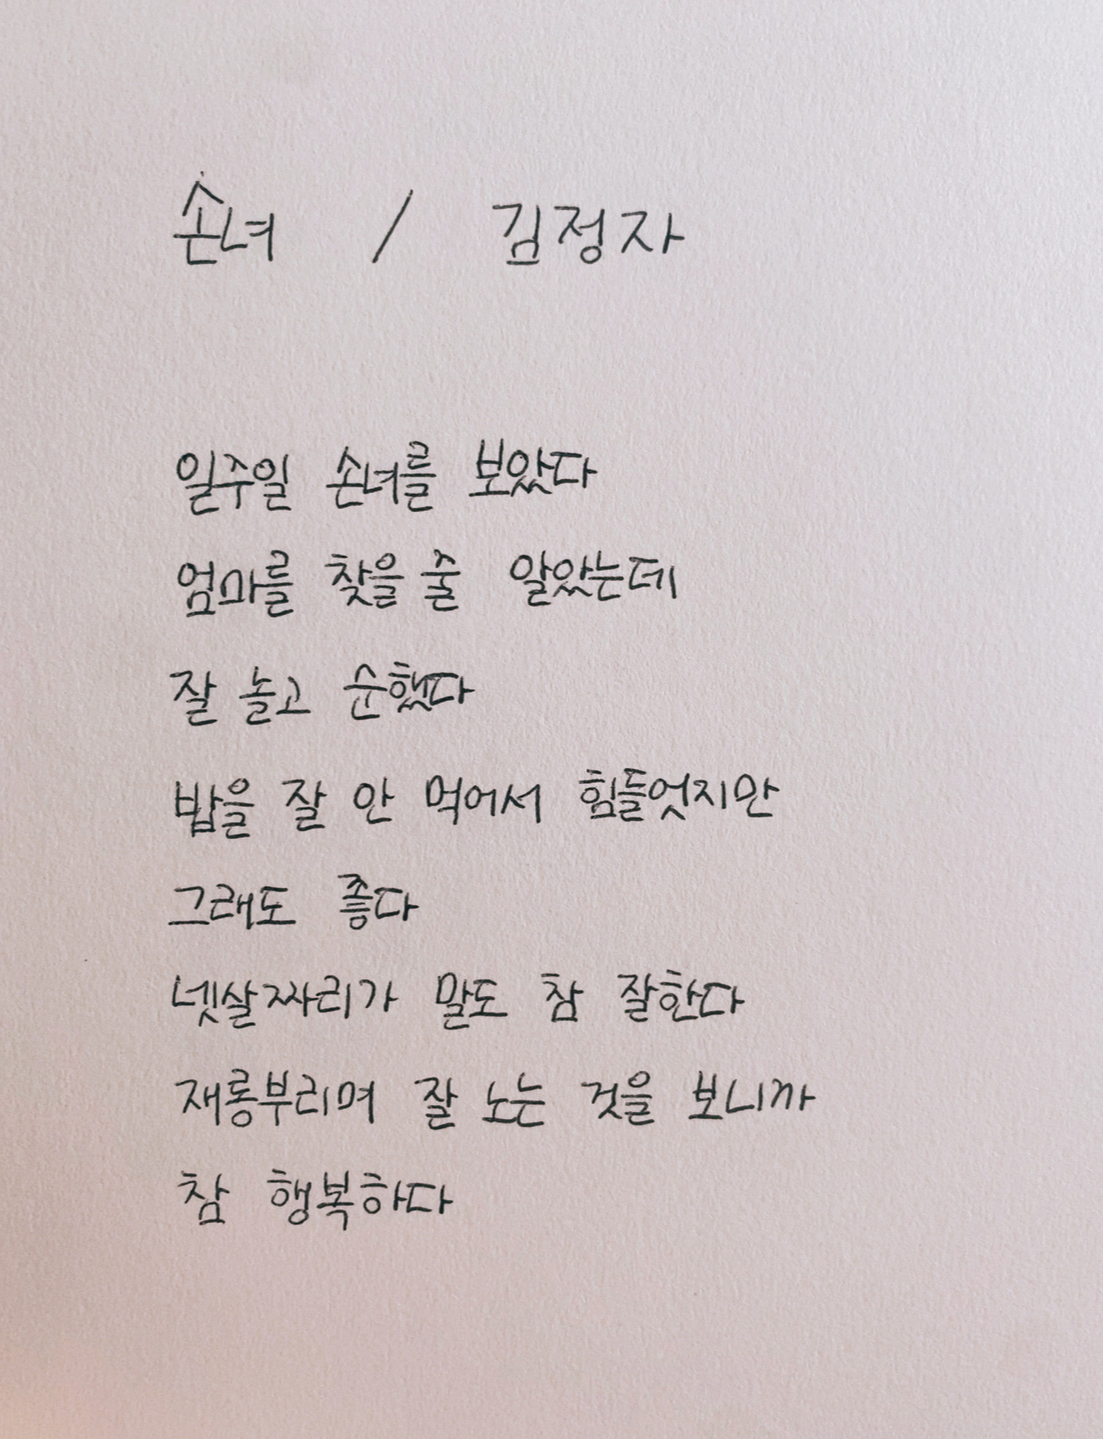 손녀 / 김정자
일주일 손녀를 보았다
엄마를 찾을 줄 알았는데
잘 놀고 순했다
밥을 잘 안 먹어서 힘들엇지만
그래도 좋다
넷살짜리가 말도 참 잘한다
재롱부리며 잘 노는 것을 보니까
참 행복하다